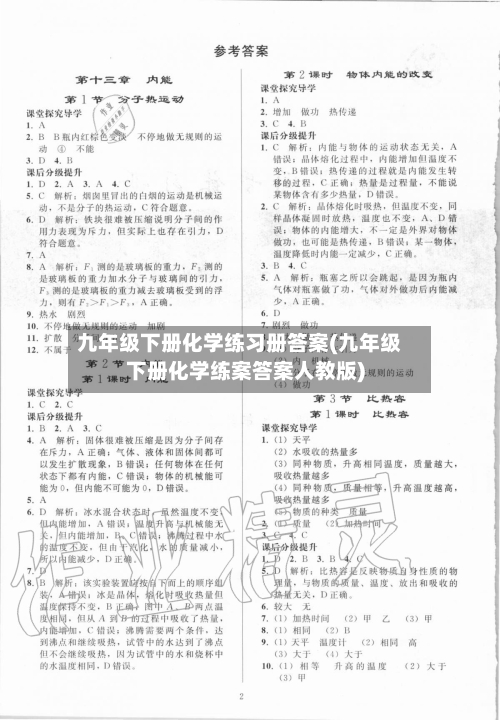 参考答案
第十三章 内能
第1节 分子热运动
课堂探究导学
1. A
2. B B瓶内红棕色变淡 不停地做无规则的运
动 ④ 不能
3. D 4. B
课后分级提升
1. D 2. A 3. A 4. C
5. C 解析：烟囱里冒出的白烟的运动是机械运
动，不是分子的热运动，C符合题意。
6. D 解析：铁块很难被压缩说明分子间的作
用力表现为斥力，但实际上也存在引力，D
符合题意。
7. A
8. A 解析：F₁测的是玻璃板的重力，F₂测的
是玻璃板的重力加水分子与玻璃间的引力，
F₃测的是玻璃板的重力减去玻璃板受到的浮
力，则有 F₂>F₁>F₃，A正确。
9. 热水 剧烈
10. 不停地做无规则运动 加剧
11. 扩散
12. 不属于
九年级下册化学练习册答案(九年级
下册化学练案答案人教版)
课堂探究导学
1. B 2. C 3. C
课后分级提升
4. A 解析：固体很难被压缩是因为分子间存
在斥力，A正确；气体、液体和固体间都可
以发生扩散现象，B错误；任何物体在任何
状态下都有内能，C错误；物体的机械能可
能为0，但内能不可能为0，D错误。
5. A
6. D 解析：冰水混合状态时，虽然温度不变，
但内能增加，A错误；温度升高与机械能无
关，但内能增加，B错误；沸腾过程中水
的温度不变，但由于汽化，水的质量减小，
所以内能减小，D正确。
7. D
8. B 解析：该实验装置应按自下而上的顺序组
装，A错误；冰是晶体，熔化时吸收热量但
温度保持不变，B正确；图中A、B两点温
度相同，但从A到B的过程中吸收了热量，
内能增加，C错误；沸腾需要两个条件，达
到沸点和继续吸热，试管中的水达到了沸点
但不会继续吸热，因为试管中的水和烧杯中
的水温度相同，D错误。
第2课时 物体内能的改变
课堂探究导学
1. A
2. 增加 做功 热传递
3. C 4. B
课后分级提升
1. C 解析：内能与物体的运动状态无关，A
错误；晶体熔化过程中，内能增加但温度不
变，B错误；热传递的过程就是内能发生转
移的过程，C正确；热量是过程量，不能说
某物体含有多少热量，D错误。
2. C 解析：晶体熔化时吸热，但温度不变，同
样晶体凝固时放热，温度也不变，A、D错
误；物体的内能增大，不一定是外界对物体
做功，也可能是热传递，B错误；某一物体，
温度降低时内能一定减少，C正确。
3. B 4. C
5. A 解析：瓶塞之所以会跳起，是因为瓶内
气体对瓶塞做了功，气体对外做功后内能减
小，A正确。
6. D
7. 剧烈
第3节 比热容
第1课时 比热容
课堂探究导学
1. （1）天平
（2）水吸收的热量多
（3）同种物质，升高相同温度，质量越大，
吸收热量越多
（4）同种物质，质量相等，升高温度越高，
吸收热量越多
（5）物质的种类 质量
2. （1）质量 （2）加热时间
3. C
课后分级提升
1. D 2. B 3. B 4. C
5. D 解析：比热容是反映物质自身性质的物
理量，与物质的质量、温度、放出和吸收的
热量无关，D正确。
6. 较大 无
7. （1）加热时间 （2）甲 乙 （3）甲
8. （1）相同 （2）B
9. （1）天平 温度计 （3）相同 （4）质量
10. （1）相等 升高的温度 （2）大于
（3）甲
2
作业精灵